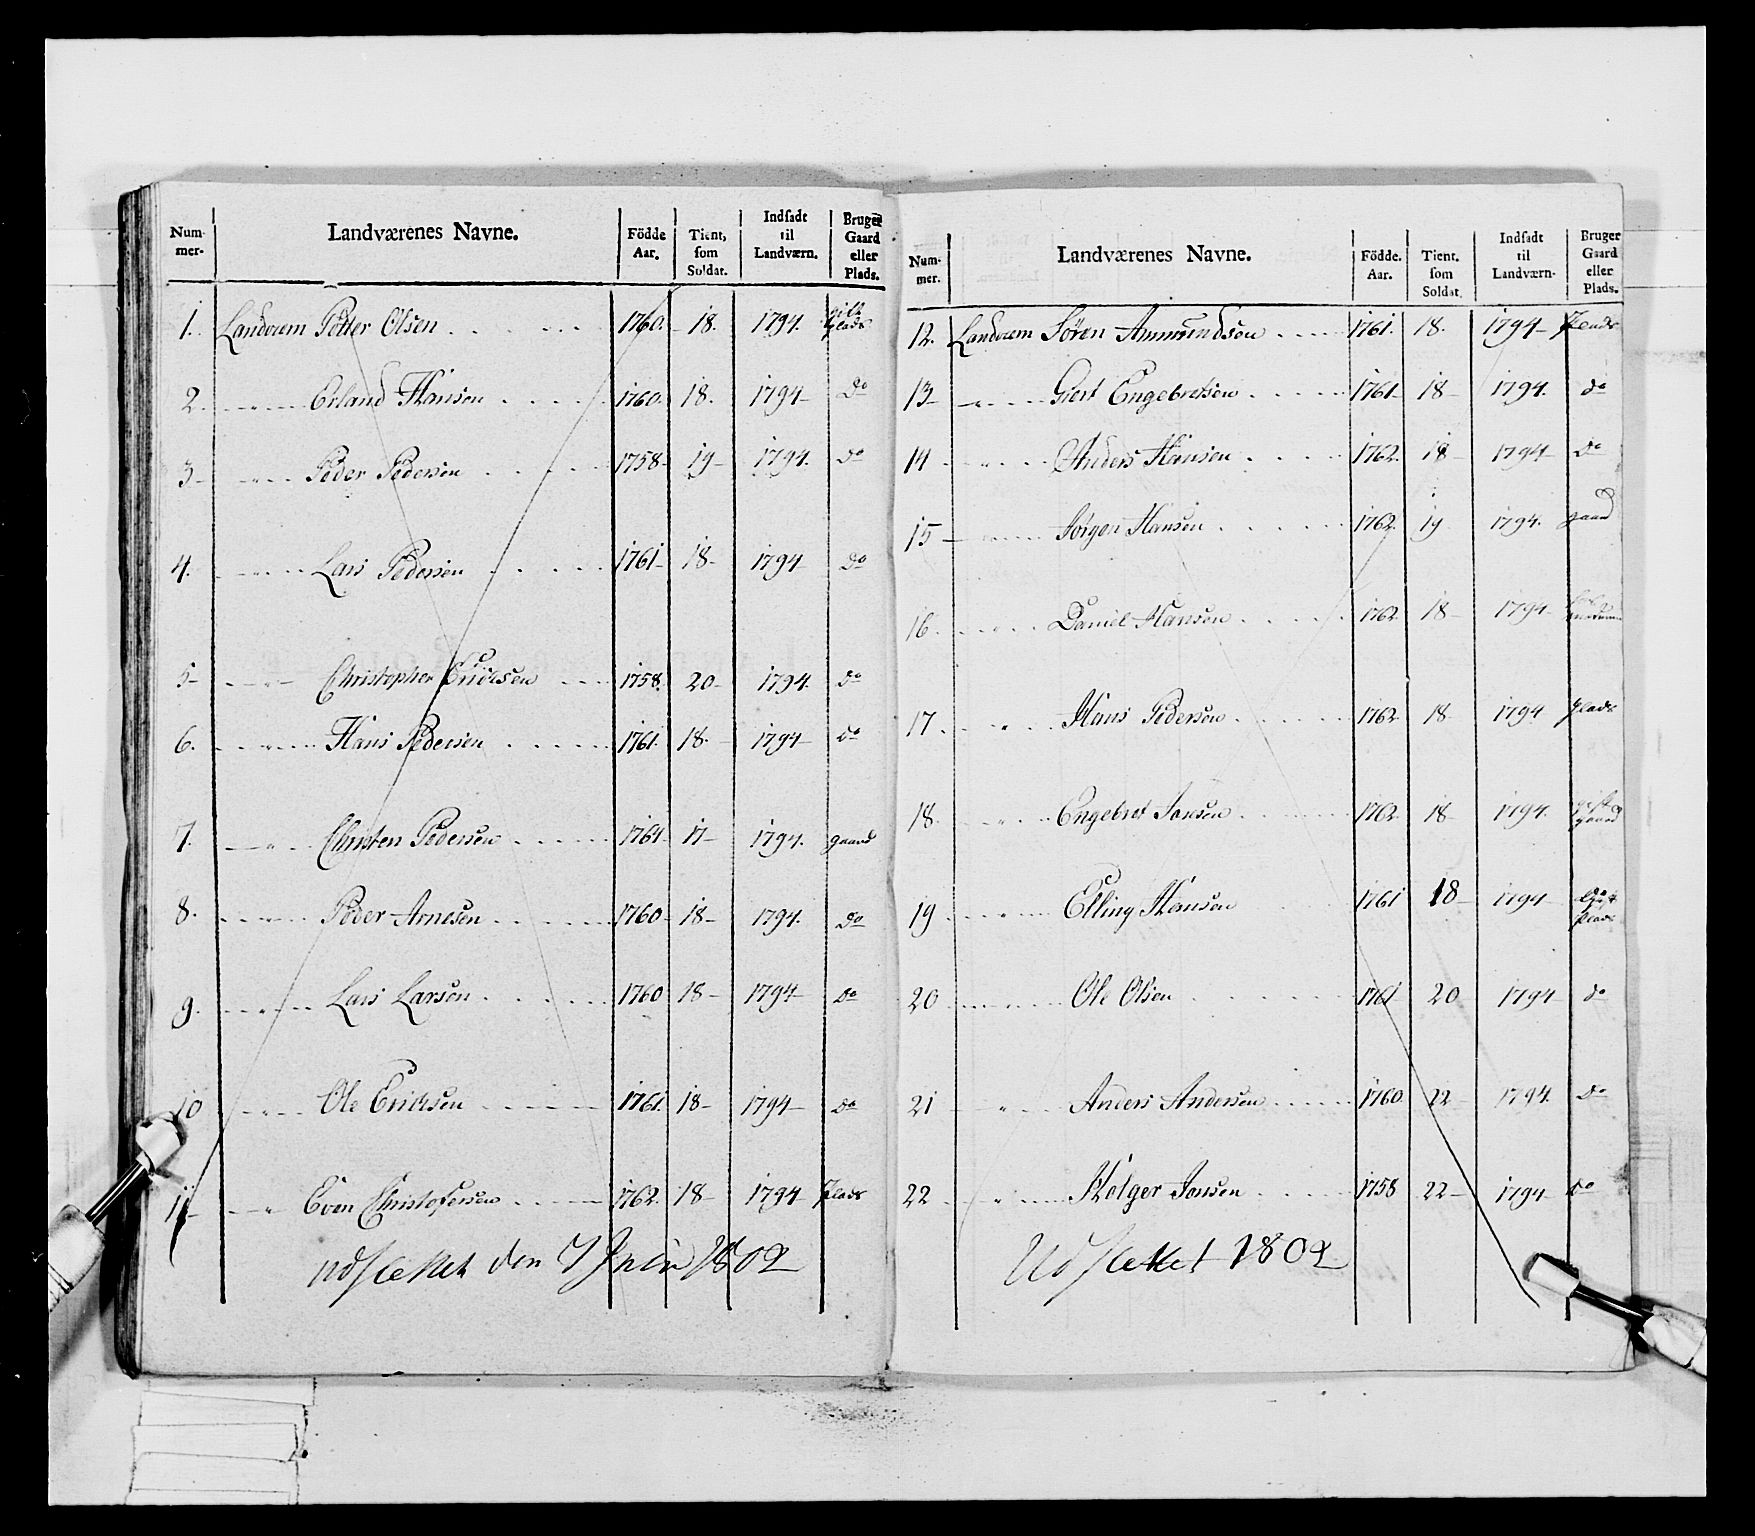 Num-
mer-
Landværenes Navne.
Födde
Aar.
Tient,
som
Soldat.
Indsadt
til
Landværn.
Bruger
Gaard
eller
Plads.
1. Landvern Petter Olsen 1760. 18. 1794. Plads
2. Erland Hansen 1760. 18. 1794 Do
3 Peder Pedersen 1758 19 1794. Do
4. Lars Pedersen 1761 18 1794 Do
5 Christopher Ericksen 1758. 20 1794. Do
6. Hans Pedersen 1761. 18. 1794 Do
7. Christen Pedersen 1764 17 1794. gaard
8. Peder Arnesen 1760 18 1794. Do
9. Lars Larsen 1760 18 1794 Do
10 Ole Ericksen 1761. 18 1794 Do
11 Even Christofersen 1762. 18 1794 Plads
udslettet den 7 Juni 1802
Num-
mer.
Landværenes Navne.
Födde.
Aar.
Tient.
som
Soldat.
Indsadt
til
Landværn-
Bruger
Gaard
eller
Plads.
12. Landvern Sören Ammundsen 1761. 18. 1794 Plads
13 Giert Engebretsen 1761 18 1794. do
14 Anders Hansen 1762. 18 1794 Do
15 Jörgen Hansen 1762. 19 1794. gaard
16. Daniel Hansen 1762 18 1794
17. Hans Pedersen 1762 18 1794 plads
18. Engebret Jonsen 1762. 18 1794. gaard
19 Elling Hansen 1761 18 1794 plads
20 Ole Olsen 1761 20 1794 do
21 Anders Andersen 1760 22 1794. Do
22 Holger Jonsen 1758 22 1794 Do
Udslettet 1802